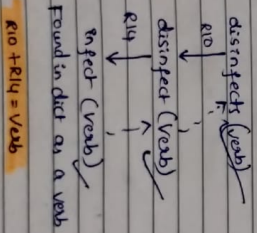 disinfects (verb)
R10
disinfect (verb)
R14
infect (verb)
Found in dict as a verb
R10 + R14 = Verb